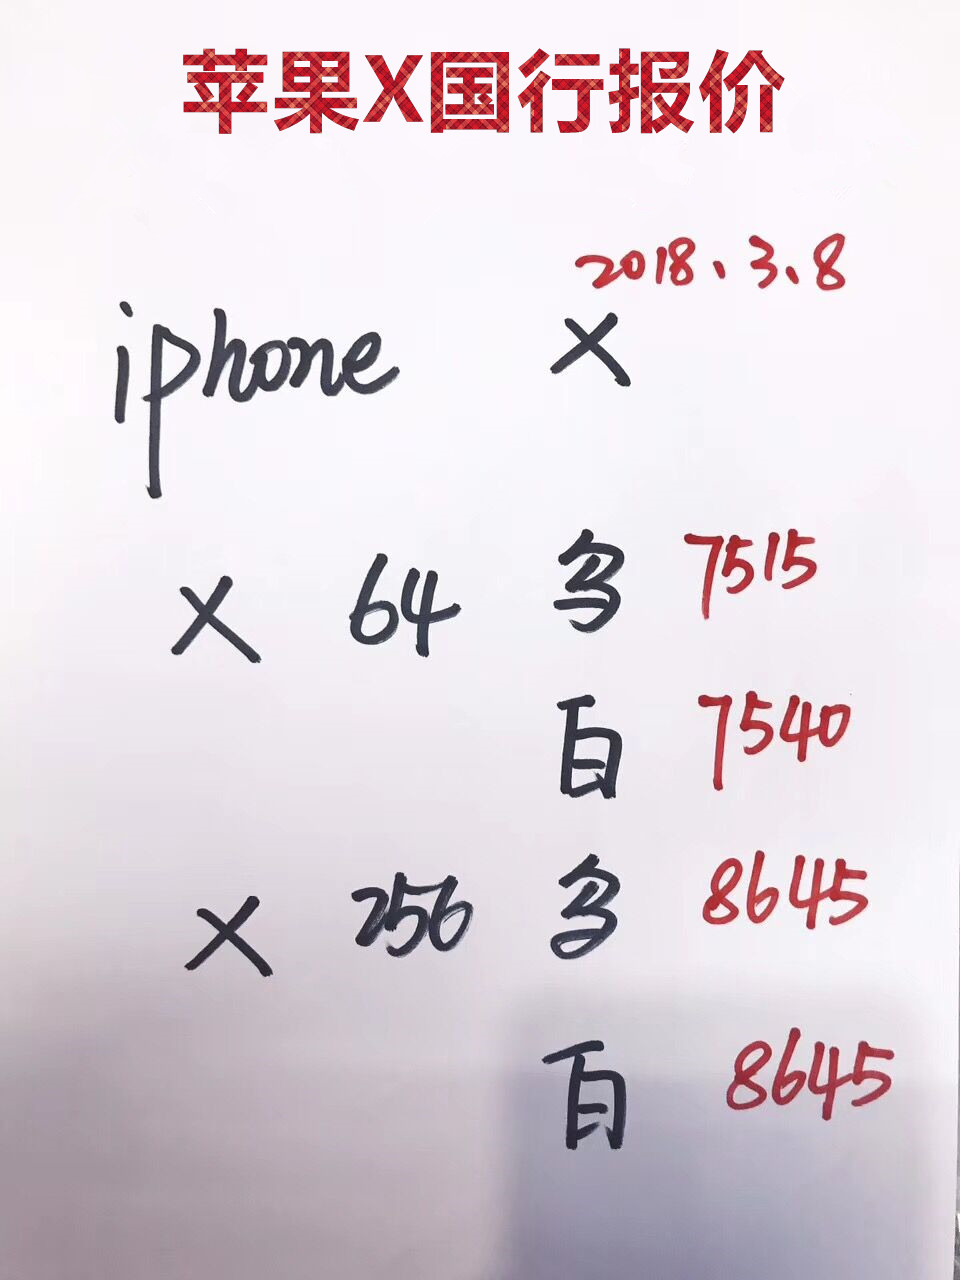 苹果X国行报价
2018、3、8
iphone X
X 64 多 7515
百 7540
X 256 多 8645
百 8645